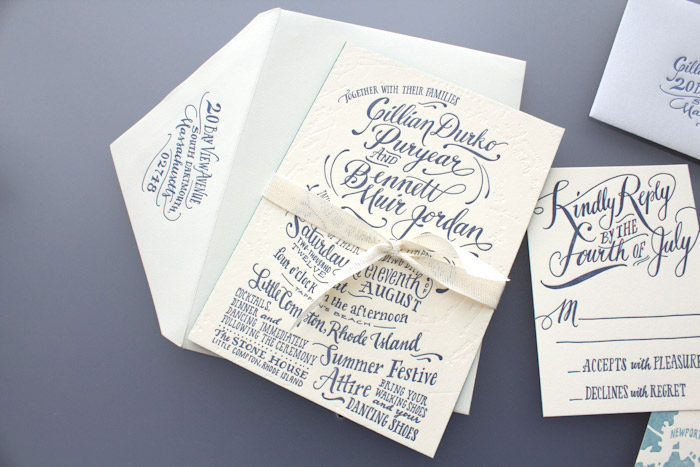 20 Bay View Avenue
South Dartmouth
Massachusetts
02748
Together with their families
Gillian Durko
Puryear
and
Bennett
Muir Jordan
Saturday
Eleventh
Two Thousand
Twelve
August
four o'clock
in the afternoon
Beach
Little Compton, Rhode Island
Cocktails,
Dinner and
Dancing immediately
following the ceremony
The Stone House
Little Compton, Rhode Island
Summer Festive
Attire
Bring your
walking shoes
and your
dancing shoes
Kindly Reply
by the
Fourth of July
M
Accepts with pleasure
Declines with regret
20
Newport